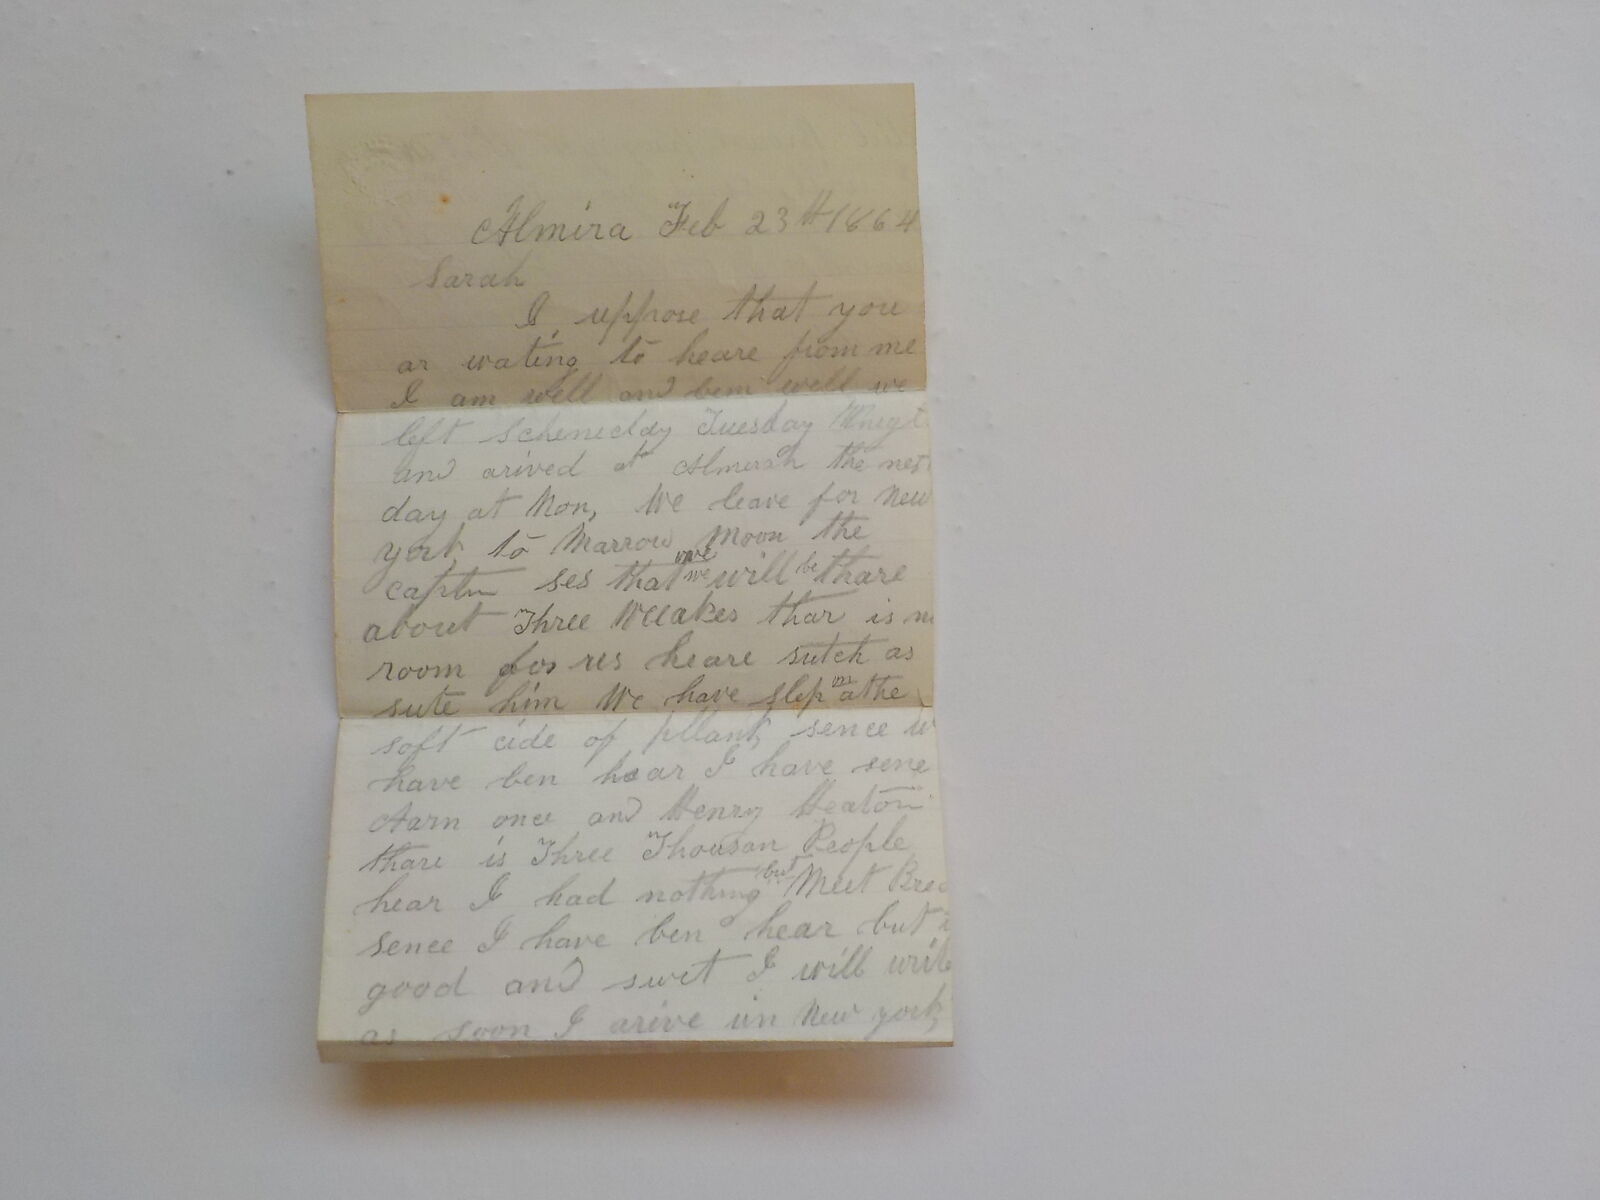 Almira Feb 23th 1864
Sarah
I suppose that you
ar wating to heare from me
I am well and bem well we
left Scheneclay Tuesday
and arived at Almirah the nes
day at Non, We leave for New
york to Marrow Moon the
captin ses that we will be thare
about Three Weeakes thar is
room for us heare sutch as
sute him We have slep on athe
soft cide of pllank sence
have ben hear I have sene
Aarn once and Henry Heaton
thare is Three Thousan People
hear I had nothing but Meet
sence I have ben hear but
good and swet I will write
as soon I arive in New york